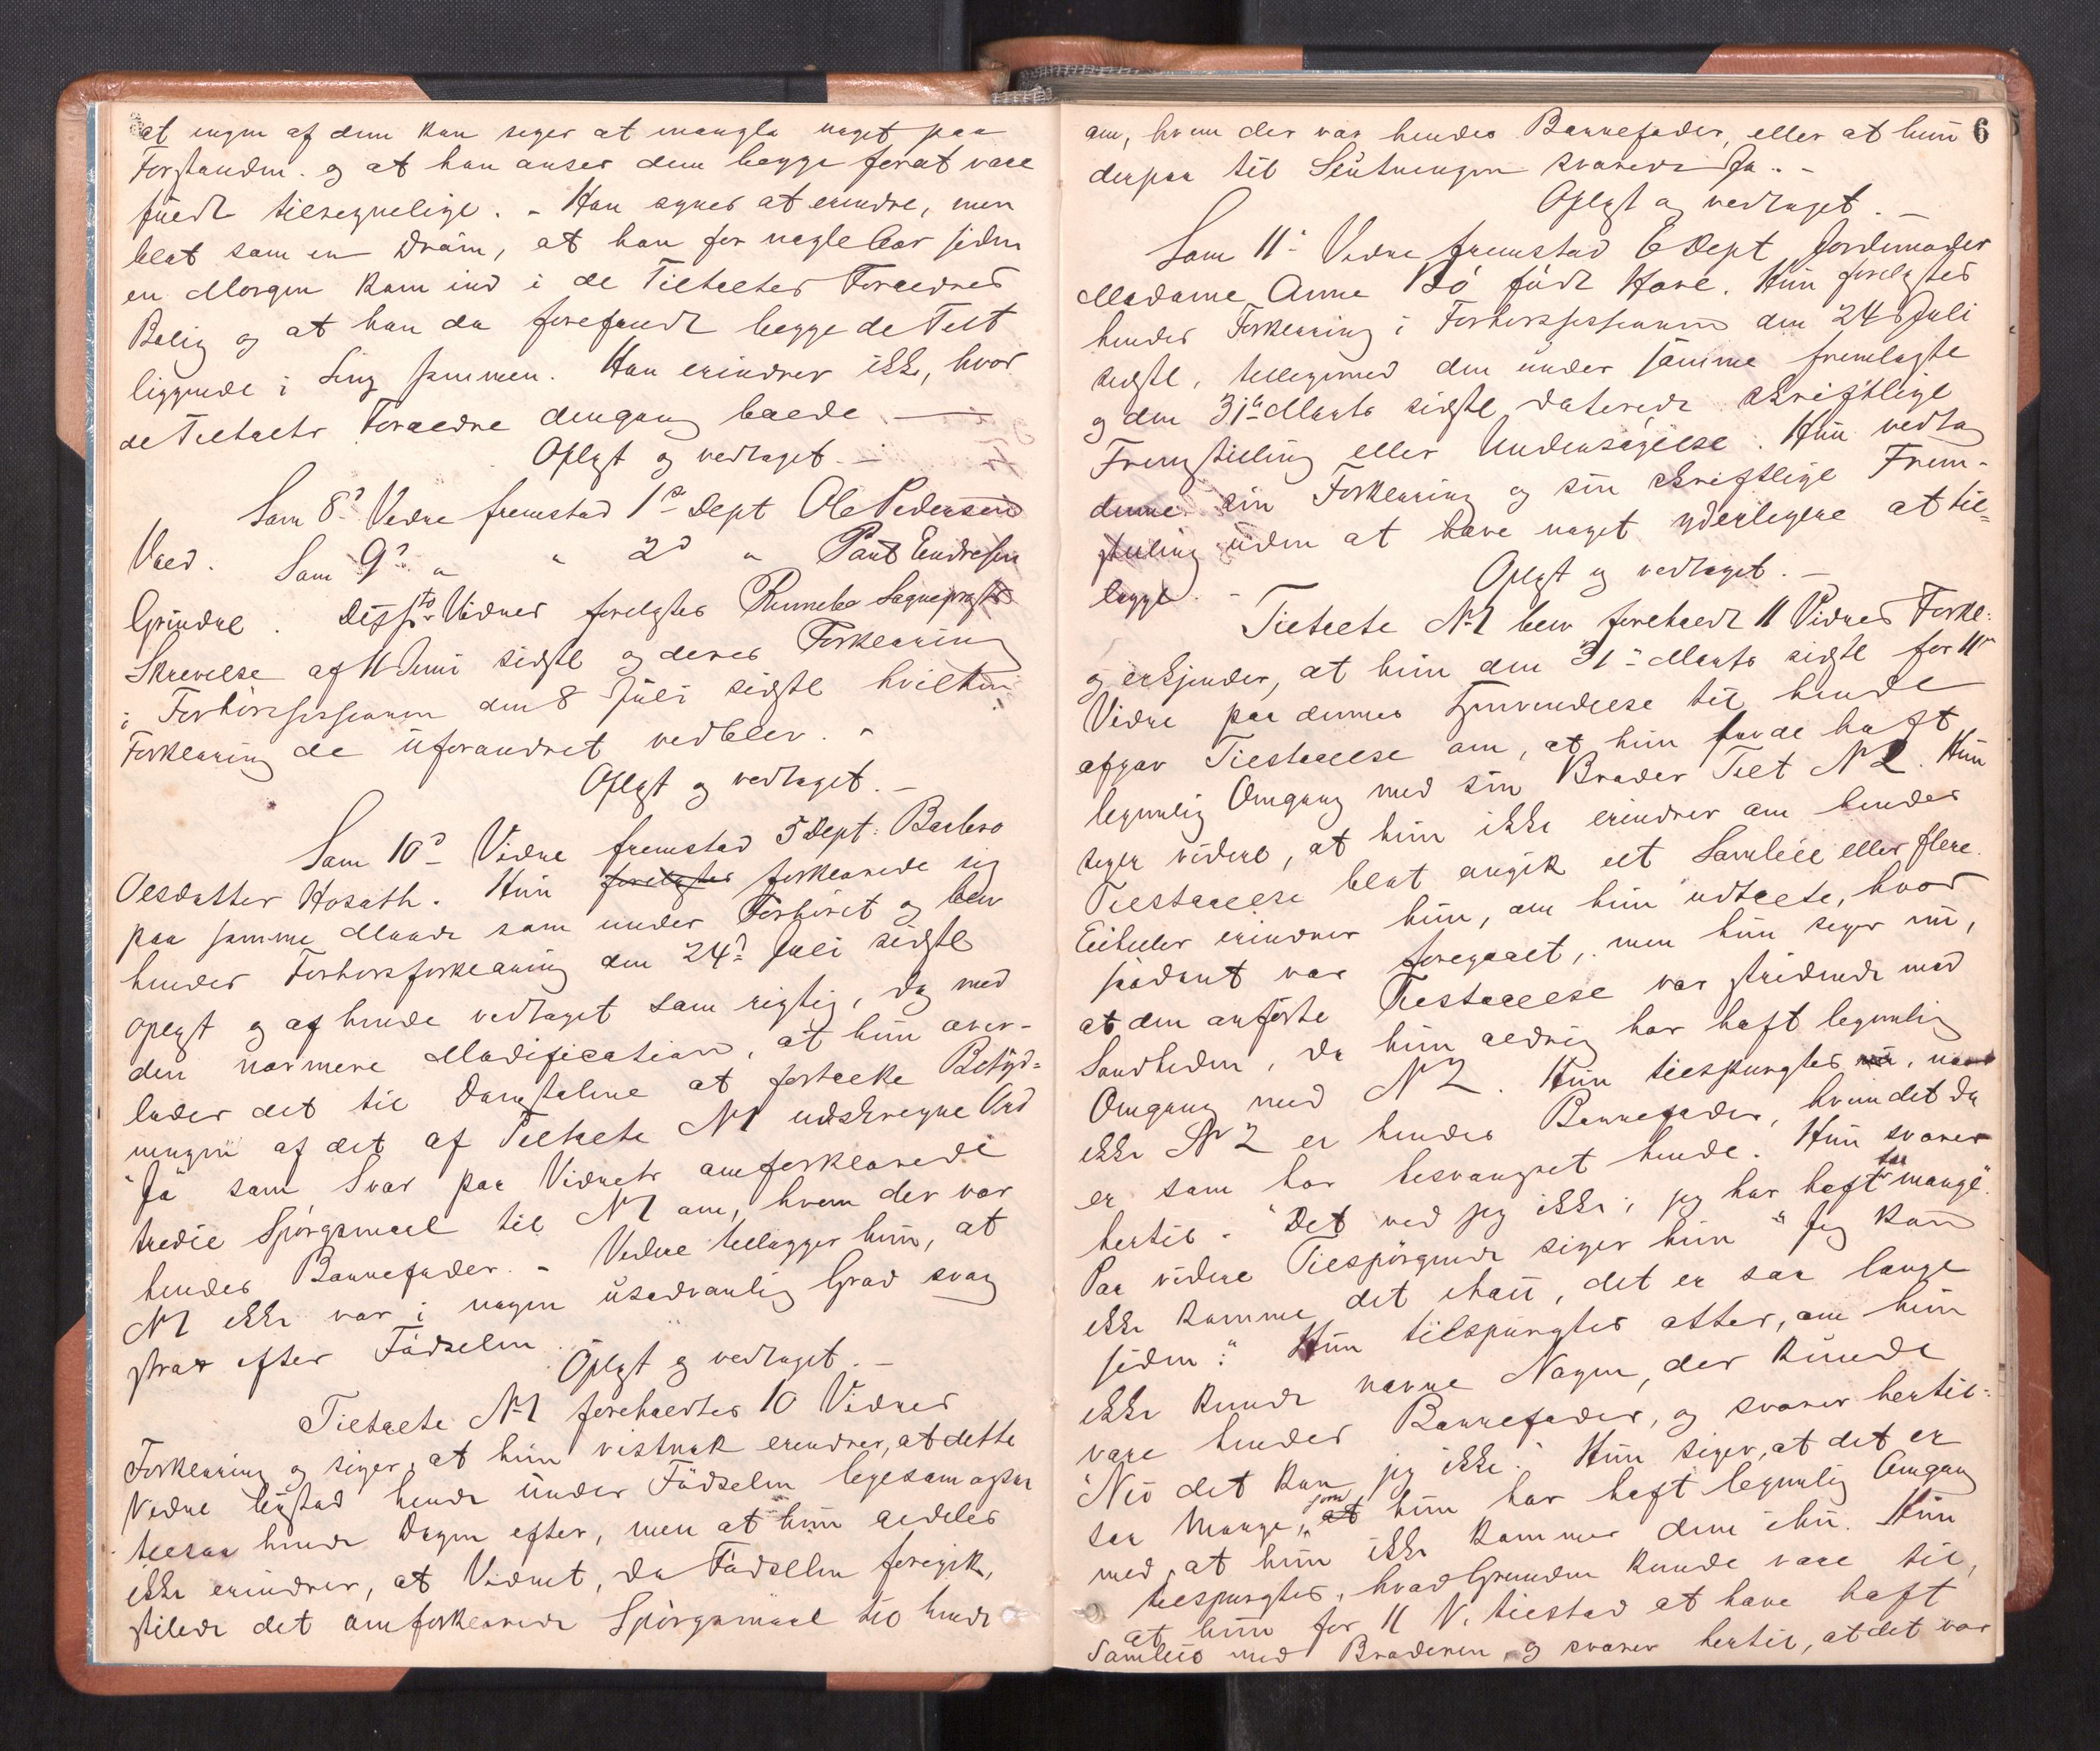 at ingen af dem kan siges at mangla noget paa
Forstanden. og at han anser dem begge for at være
fuldt tilregnelige. - Han synes at erindre, men
blot som en Dröm, at han for nogle Aar siden
en Morgen kom ind i de Tiltaltes Forældres
Bolig og at han da forefandt begge de Tilt
liggende i Seng sammen. Han erindrer ikke, hvor
de Tiltaltes Forældre dengang boede. —
Oplyst og vedtaget. —
Som 8de Vidne fremstod 1ste Dept Ole Pedersen
Vold. Som 9de " " 2d " Poul Endresen
Grinde. Disse to Vidner forelystes Rennebo Sogneprests
Skrivelse af 11 Juni sidstl og deres Forklaring
i Forhörssessionen den 8 Juli sidstl hvilken
Forklaring de uforandret vedblev. -
Oplyst og vedtaget. —
Som 10de Vidne fremstod 5 Dept: Barbro
Olsdatter Hosøth. Hun forelystes forklarede sig
paa samme Maade som under Forhöret og blev
hendes Forhörsforklaring den 24de Juli sidstl
oplyst og af hende vedtaget som rigtig, dog med
den nærmere Modification, at hun over-
lader det til Domstolene at fortolke Betyd-
ningen af det af Tiltalte No 1 udskregne Ord
"Ja" som Svar paa Vidnets omforklarede
tredie Spörgsmaal til No 1 om, hvem der var
hendes Barnefader. - Vidnet tillægger hun, at
No 1 ikke var i nogen usedvanlig Grad svag
strax efter Födselen.
Oplyst og vedtaget. —
Tiltalte No 1 foreholdtes 10 Vidnes
Forklaring og siger, at hun vistnok erindrer, at dette
Vidne bistod hende under Födselen ligesom ogsaa
tilsaa hende Dagen efter, men at hun aldeles
ikke erindrer, at Vidnet, da Födselen foregik,
stillede det omforklarede Spörgsmaal til hende
6
om, hvem der var hendes Barnefader, eller at hun
derpaa til Slutningen svarede Ja. -
Oplyst og vedtaget. —
Som 11te Vidne fremstod 6 Dept Jordemoder
Madame Anne Bö födt Hove. Hun forelystes
hendes Forklaring i Forhörssessionen den 24 Juli
sidstl, tilligemed den under samme fremlagte
og den 31te Marts sidstl daterede skriftlige
Fremstilling eller Undersögelse. Hun vedtog
denne sin Forklaring og sin skriftlige Frem-
stilling uden at have noget yderligere at til-
lægge. -
Oplyst og vedtaget. —
Tiltalte No 1 blev foreholdt 11 Vidnes Forkl:
og erkjender, at hun den 31te Marts sidstl for 11te
Vidne paa dennes Henvendelse til hende
afgav Tilstaaelse om, at hun havde haft
legemlig Omgang med sin Broder Tilt No 2. Hun
siger videre, at hun ikke erindrer om hendes
Tilstaaelse blot angik eet Samleie eller flere.
Ei heller erindrer hun, om hun udtalte, hvor
saadant var foregaaet, men hun siger nu,
at den anförte Tilstaaelse var stridende mod
Sandheden, da hun aldrig har haft legemlig
Omgang med No 2. Hun tilspurgtes nu, naar
ikke No 2 er hendes Barnefader, hvem det da
er som har besvangret hende. Hun svarer
hertil: "Det ved jeg ikke; jeg har haft saa mange".
Paa videre Tilspörgende siger hun "Jeg kan
ikke komme det ihau, det er saa længe
siden." Hun tilspurgtes atter, om hun
ikke kunde nævne Nogen, der kunde
være hendes Barnefader, og svarer hertil:
"Nei det kan jeg ikke." Hun siger, at det er
saa Mange, at som hun har haft legemlig Omgang
med, at hun ikke kommer dem ihu. Hun
tilspurgtes, hvad Grunden kunde være til,
at hun for 11 V. tilstod at have haft
Samleie med Broderen, og svarer hertil, at det var